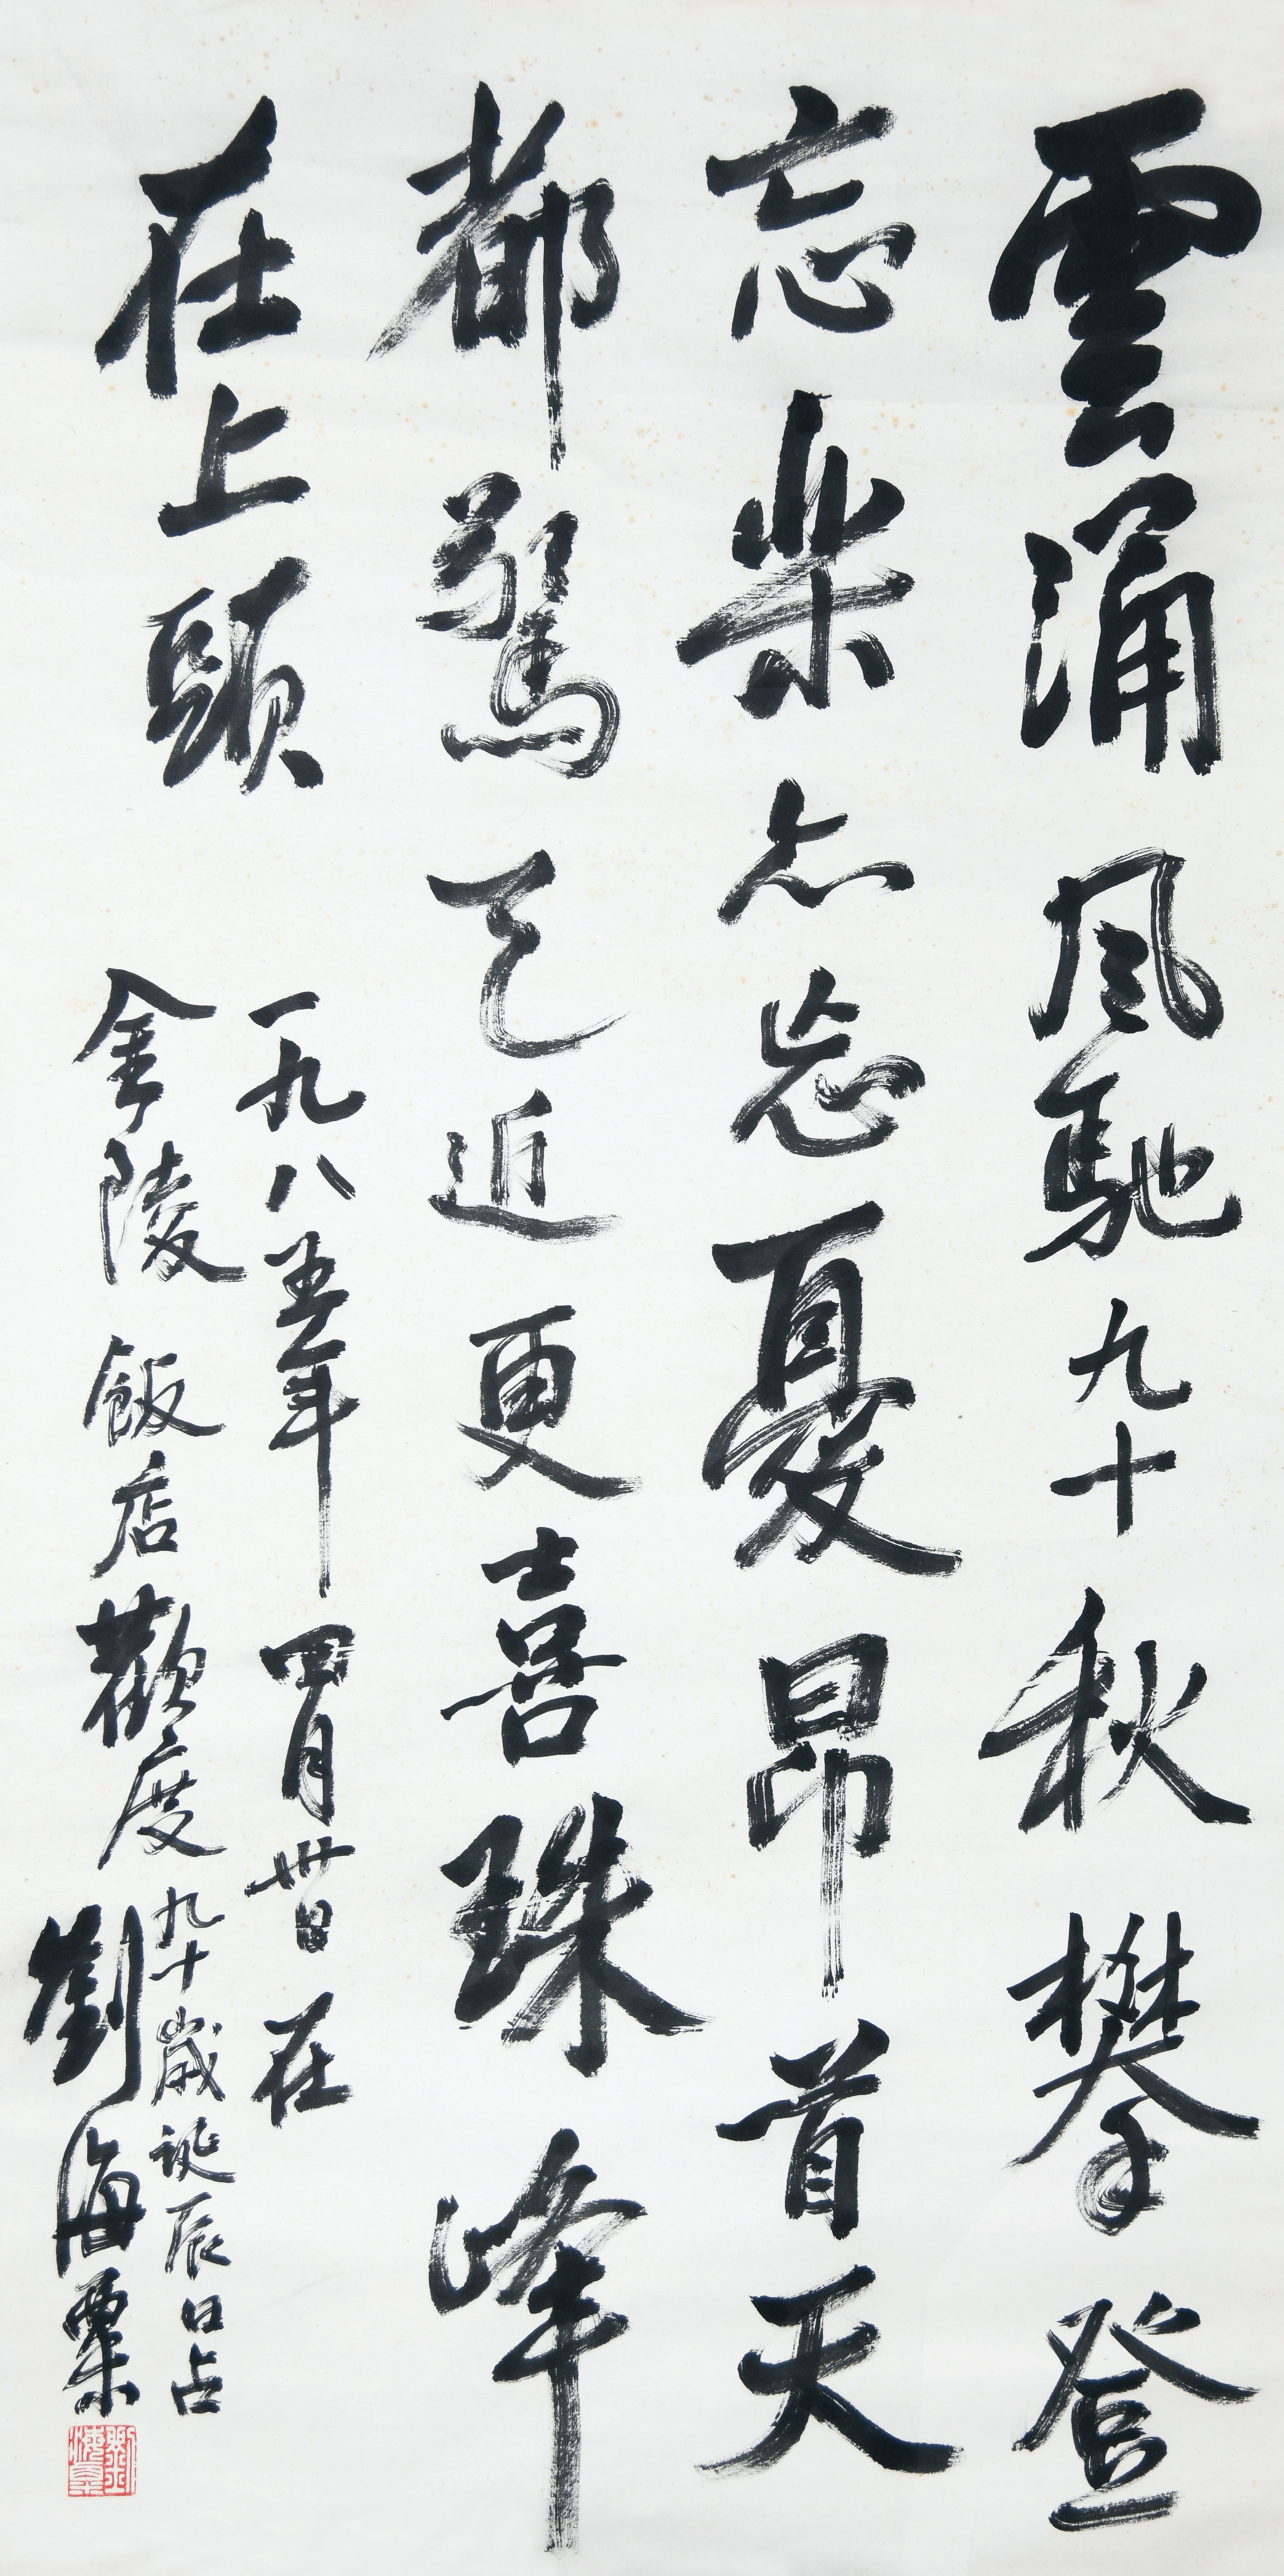 雲涌風馳九十秋攀登
忘樂亦忘憂昂首天
都驚已近更喜珠峰
在上頭
一九八五年四月卅日在
金陵飯店歡度九十歲誕辰口占
劉海粟
劉海粟